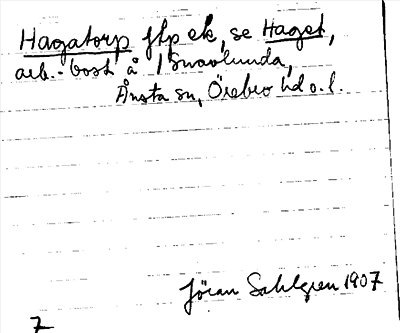 Hagatorp flp ek, se Haget,
arb.-bost å 1 Snavlunda,
Ånsta sn, Örebro hd o. l.
Jöran Sahlgren 1907
7